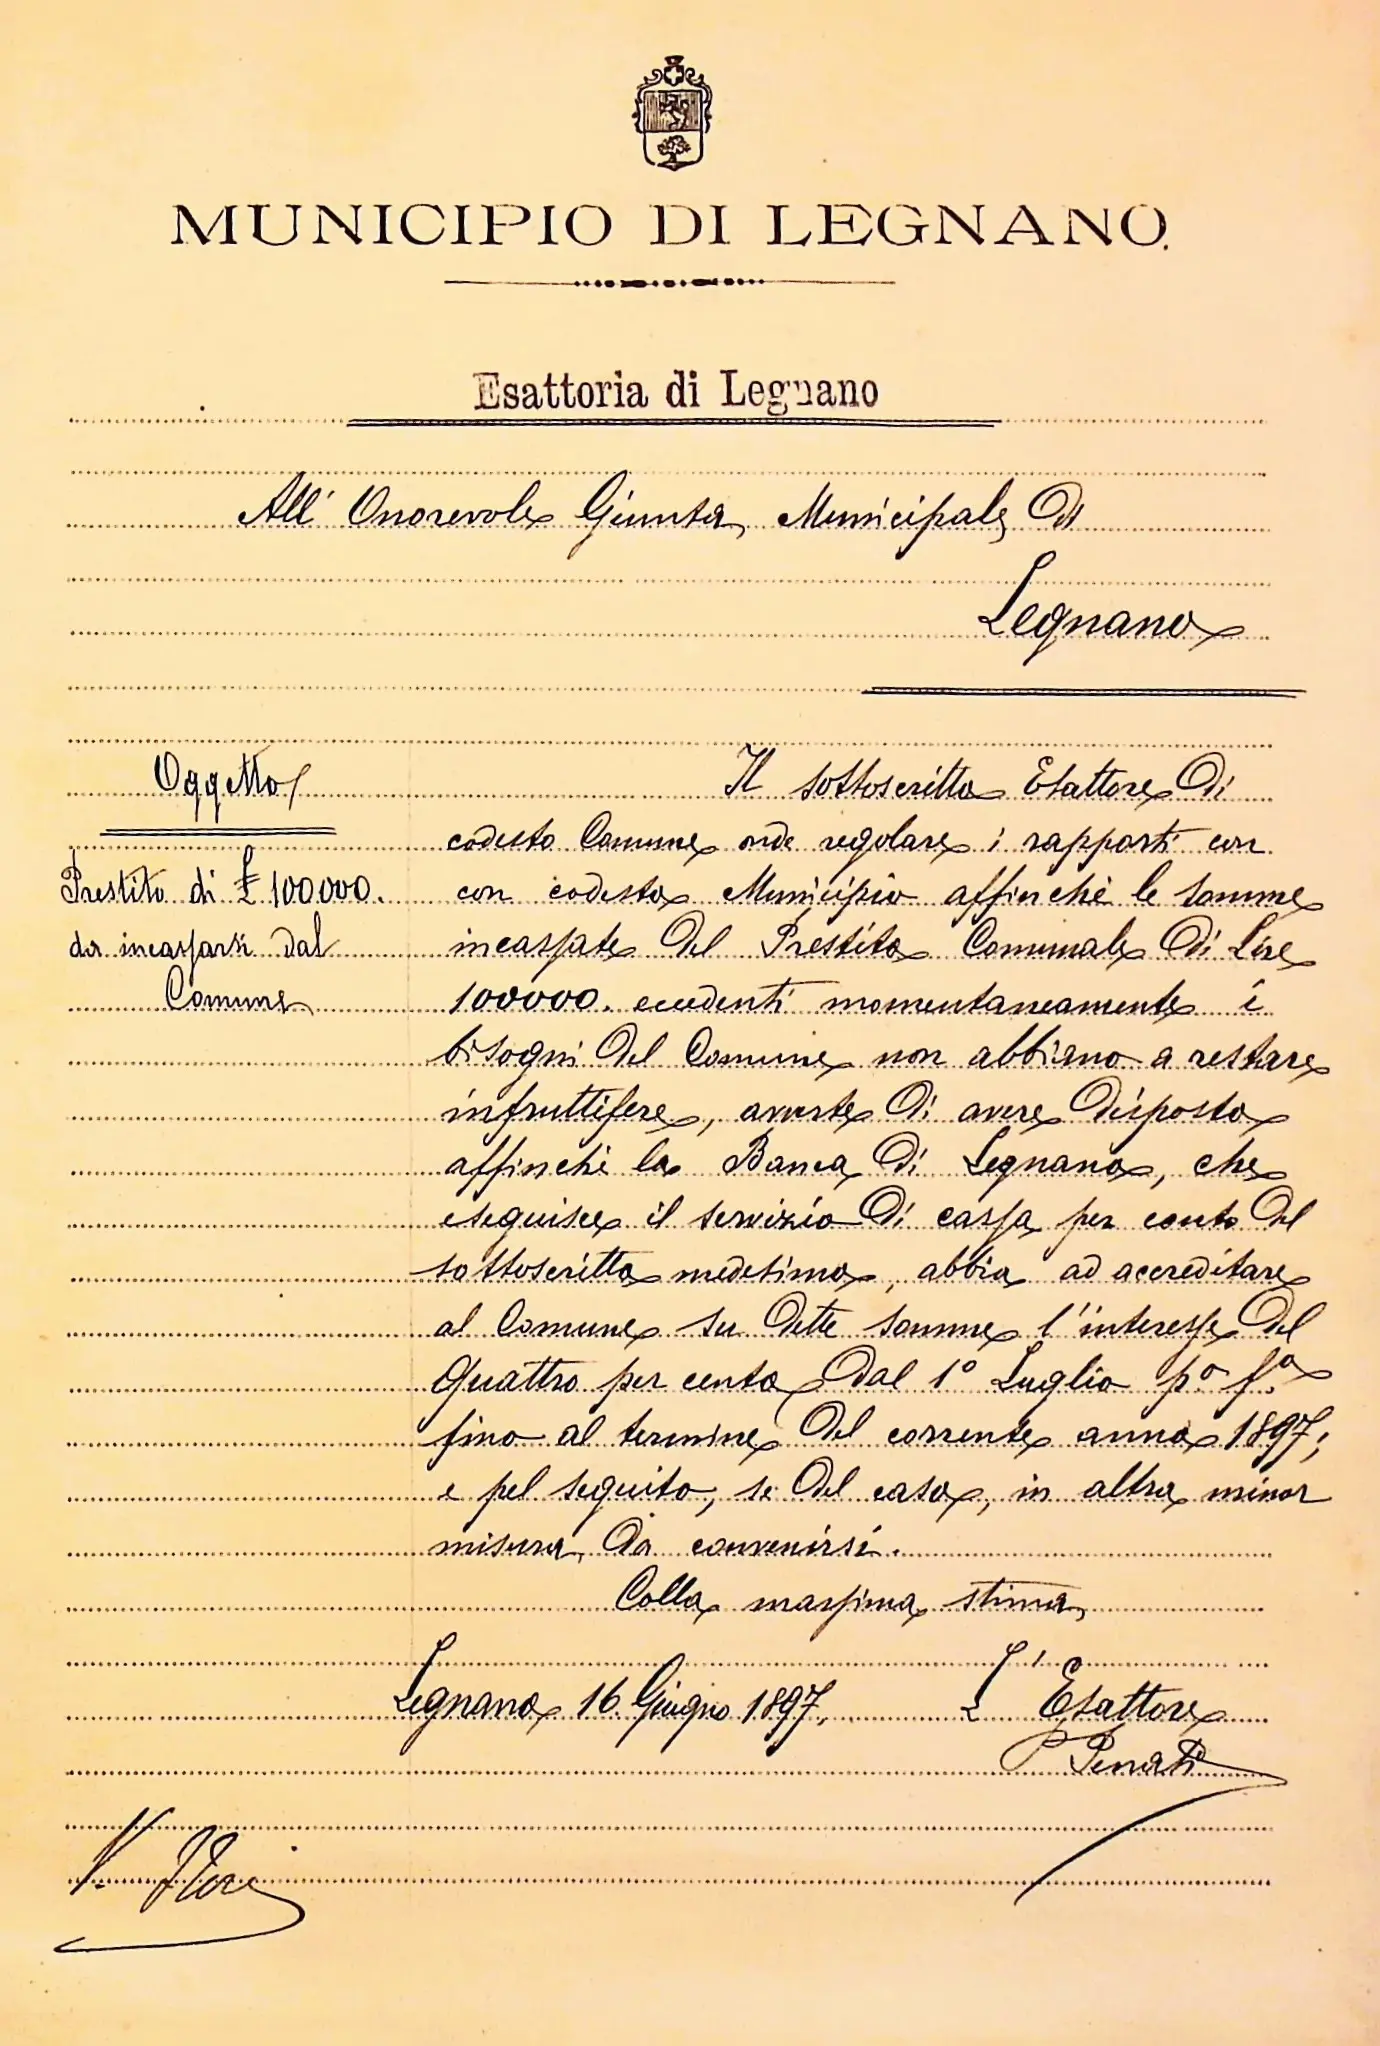 MUNICIPIO DI LEGNANO.
Esattoria di Legnano
All' Onorevole Giunta Municipale di
Legnano
Oggetto
Prestito di £ 100.000.
da incassarsi dal
Comune
Il sottoscritto Esattore di
codesto Comune onde regolare i rapporti con
con codesto Municipio affinchè le somme
incassate del Prestito Comunale di Lire
100000. eccedenti momentaneamente i
bisogni del Comune non abbiano a restare
infruttifere, averte di avere disposto
affinchè la Banca di Legnano, che
eseguisce il servizio di cassa per conto del
sottoscritto medesimo, abbia ad accreditare
al Comune su dette somme l'interesse del
quattro per cento dal 1º Luglio pº fº
fino al termine del corrente anno 1897;
e pel seguito, se del caso, in altra minor
misura da convenirsi.
Colla massima stima
Legnano 16. Giugno 1897.
L' Esattore
P Penati